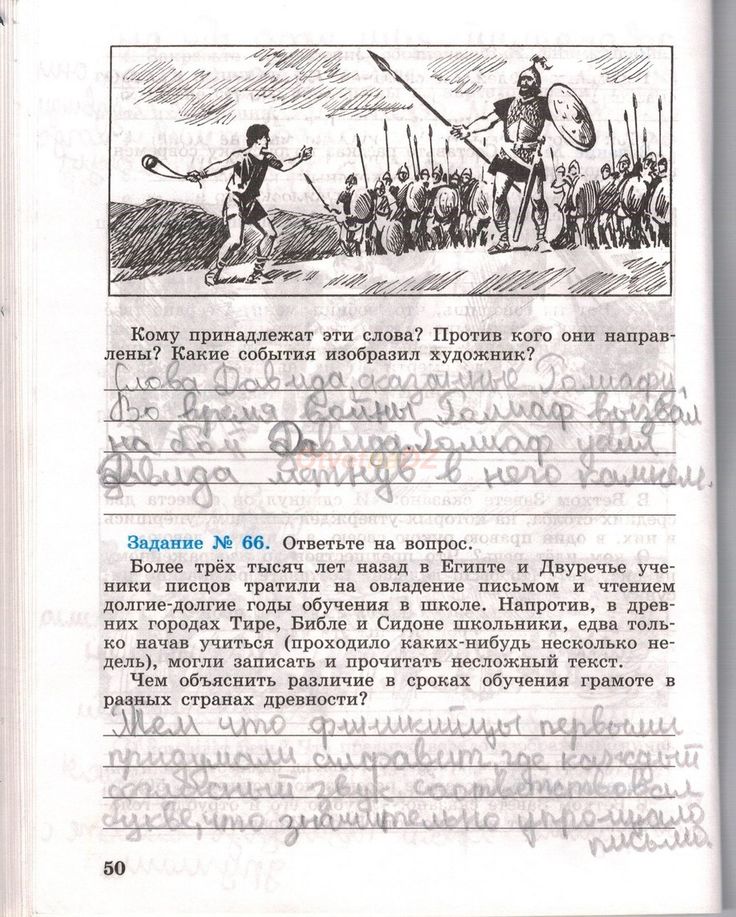 Кому принадлежат эти слова? Против кого они направ-
лены? Какие события изобразил художник?
Слова Давида, сказанные Голиафу.
Во время войны Голиаф вызвал
на бой Давида. Голиаф убил
Давида метнув в него камнем.
OtvetorOZ
Задание № 66. Ответьте на вопрос.
Более трёх тысяч лет назад в Египте и Двуречье уче-
ники писцов тратили на овладение письмом и чтением
долгие-долгие годы обучения в школе. Напротив, в древ-
них городах Тире, Библе и Сидоне школьники, едва толь-
ко начав учиться (проходило каких-нибудь несколько не-
дель), могли записать и прочитать несложный текст.
Чем объяснить различие в сроках обучения грамоте в
разных странах древности?
Тем что финикийцы первыми
придумали алфавит где каждый
звук соответствовал
букве, что значительно упрощало
письмо.
50